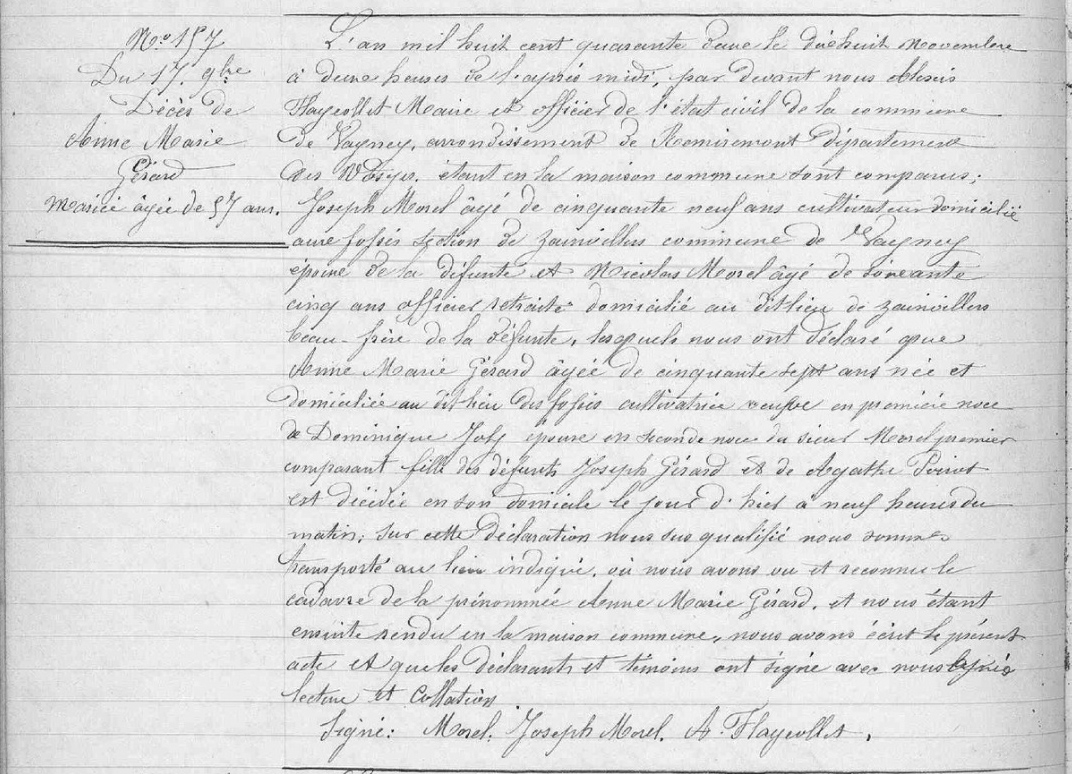 No 157
Du 17. 9bre
Décès de
Anne Marie
Gérard
Mariée âgée de 57 ans.
L'an mil huit cent quarante deux le dixhuit Novembre
à deux heures de l'après midi, par devant nous Alexis
Flayeollet Maire et officier de l'état civil de la commune
de Vagney, arrondissement de Remiremont département
des Vosges, étant en la maison commune sont comparus;
Joseph Morel âgé de cinquante neuf ans cultivateur domicilié
aux fossés section de Zainvillers commune de Vagney
époux de la défunte et Nicolas Morel âgé de soixante
cinq ans officier retraité domicilié au dit lieu de Zainvillers
beau-frère de la défunte, lesquels nous ont déclaré que
Anne Marie Gérard âgée de cinquante sept ans née et
domiciliée au dit lieu des fossés cultivatrice veuve en première noce
de Dominique Joly épouse en seconde noce du sieur Morel premier
comparant fille des défunts Joseph Gérard et de Agathe Poirot
est décédée en son domicile le jour d'hier à neuf heures du
matin; sur cette déclaration nous sus qualifié nous sommes
transporté au lieu indiqué, où nous avons vu et reconnu le
cadavre de la prénommée Anne Marie Gérard, et nous étant
ensuite rendu en la maison commune, nous avons écrit le présent
acte et que les déclarants et témoins ont signé avec nous après
lecture et Collation
Signé: Morel. Joseph Morel. A. Flayeollet.